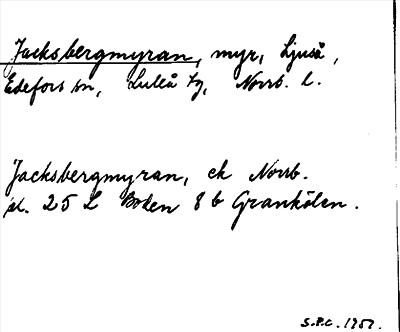 Jacksbergmyran, myr, Ljuså,
Edefors sn, Luleå tg, Norrb. l.
Jacksbergmyran, ek Norrb.
bl. 25 L Boden 8 b Granhölen.
S.P.C. 1959.